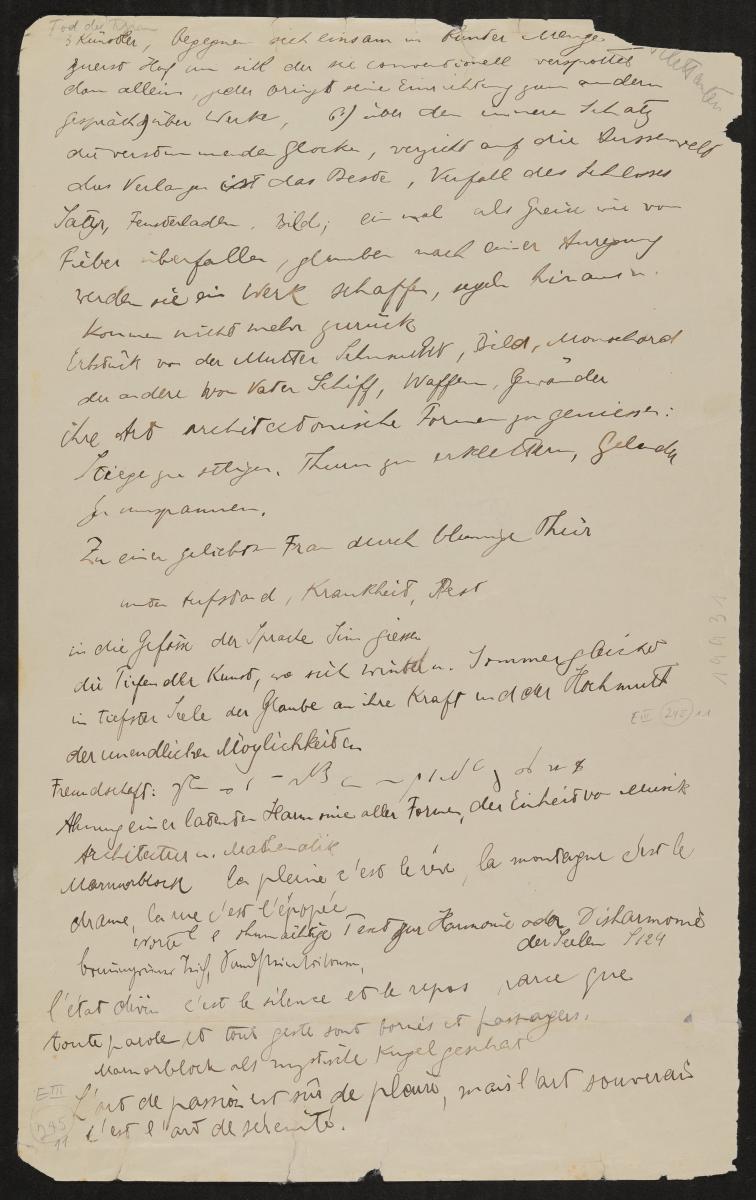 Tod des
3 Künstler, begegnen sich einsam in bunter Menge.
zuerst Hof um sitl der sie conventionell verspottet
dann allein, jeder bringt seine Einrichtung zum andern
gespräch) über Werke, über den inneren Schatz
die verstummenden Glocken, verzicht auf die Aussenwelt
das Verlangen ist das Beste, Verfall des Schlosses
Satyr, Fensterladen, Bild; einmal als Greise wie vom
Fieber überfallen, glauben nach einer Anregung
werden sie ein Werk schaffen, segeln hinaus u.
kommen nicht mehr zurück
Erbstück von der Mutter Schmuck, Bild, Monochord
der andere vom Vater Schiff, Waffen, Gewänder
ihre Art architectonische Formen zu geniessen:
Stiege zu steigen, Thurm zu erklettern, Gelände
zu umspannen.
Zu einer geliebten Frau durch blumige Thür
unter Aufstand, Krankheit, Pest
in die Gefässe der Sprache Sinn giessen
die Tiefen der Kunst, wo sich Winter u. Sommer gleichet
in tiefster Seele der Glaube an ihre Kraft und der Hochmuth
der unendlichen Möglichkeiten
E III 245 11
Freundschaft:
Ahnung einer latenten Harmonie aller Formen, der Einheit von Musik
Architectur u. Mathematik
Marmorblock la pleine c'est le rêve, la montagne c'est le
drame, la mer c'est l'épopée
Worte ohnmächtige Text zur Harmonie oder Disharmonie
der Seelen S 124
l'état divin c'est le silence et le repos parce que
toute parole et tout geste sont bornés et passagers.
Marmorblock als mystische Kugel geschat
L'art de passion est sûr de plaire, mais l'art souverain
c'est l'art de sérénité.
E III
245
11
19931